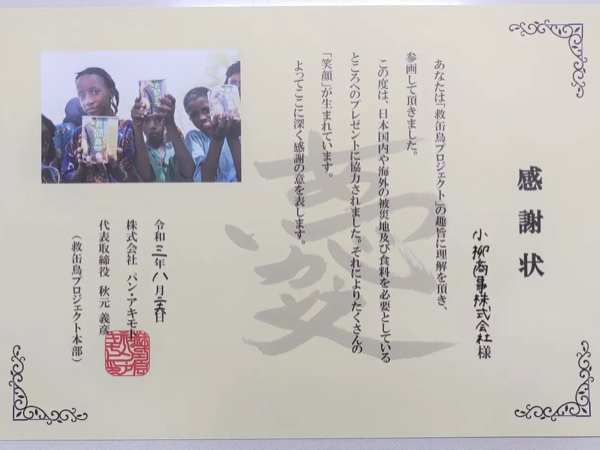 感謝状
小柳商事株式会社 様
あなたは「救缶鳥プロジェクト」の趣旨に理解を頂き、
参画して頂きました。
この度は、日本国内や海外の被災地及び食料を必要としている
ところへのプレゼントに協力されました。それによりたくさんの
「笑顔」が生まれています。
よってここに深く感謝の意を表します。
令和三年八月
株式会社 パン・アキモト
代表取締役 秋元 義彦
(救缶鳥プロジェクト本部)